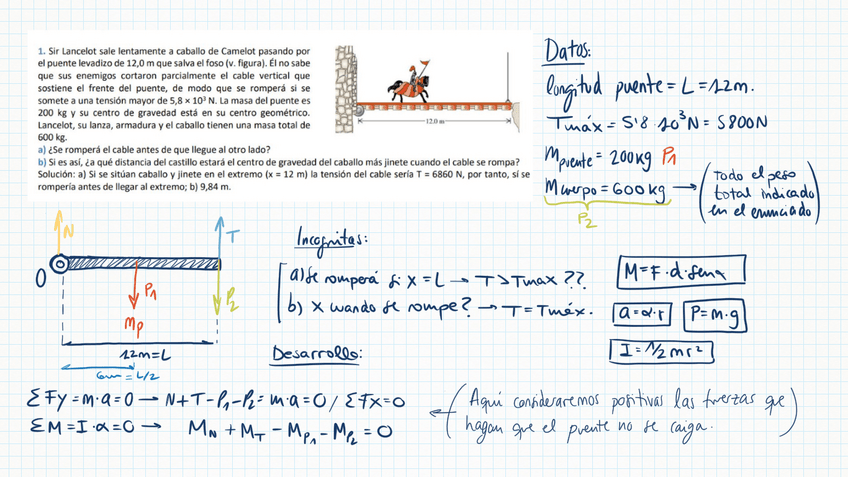 1. Sir Lancelot sale lentamente a caballo de Camelot pasando por
el puente levadizo de 12,0 m que salva el foso (v. figura). Él no sabe
que sus enemigos cortaron parcialmente el cable vertical que
sostiene el frente del puente, de modo que se romperá si se
somete a una tensión mayor de 5,8 × 10³ N. La masa del puente es
200 kg y su centro de gravedad está en su centro geométrico.
Lancelot, su lanza, armadura y el caballo tienen una masa total de
600 kg.
a) ¿Se romperá el cable antes de que llegue al otro lado?
b) Si es así, ¿a qué distancia del castillo estará el centro de gravedad del caballo más jinete cuando el cable se rompa?
Solución: a) Si se sitúan caballo y jinete en el extremo (x = 12 m) la tensión del cable sería T = 6860 N, por tanto, sí se
rompería antes de llegar al extremo; b) 9,84 m.
12.0 m
Datos:
longitud puente = L = 12m.
Tmáx = 5'8 · 10³N = 5800N
Mpuente = 200kg P₁
Mcuerpo = 600kg → (Todo el peso
total indicado
en el enunciado)
P₂
N
T
O
P₁
P₂
Mp
12m = L
6m = L/2
Incognitas:
a) Se romperá si x = L → T > Tmax ??
b) x cuando se rompe? → T = Tmáx.
M = F · d · senα
a = α · r
P = m · g
I = 1/2 mr²
Desarrollo:
ΣFy = m·a = 0 → N + T - P₁ - P₂ = m·a = 0 / ΣFx = 0
ΣM = I·α = 0 → M_N + M_T - M_P₁ - M_P₂ = 0
(Aquí consideraremos positivas las fuerzas que
hagan que el puente no se caiga.)